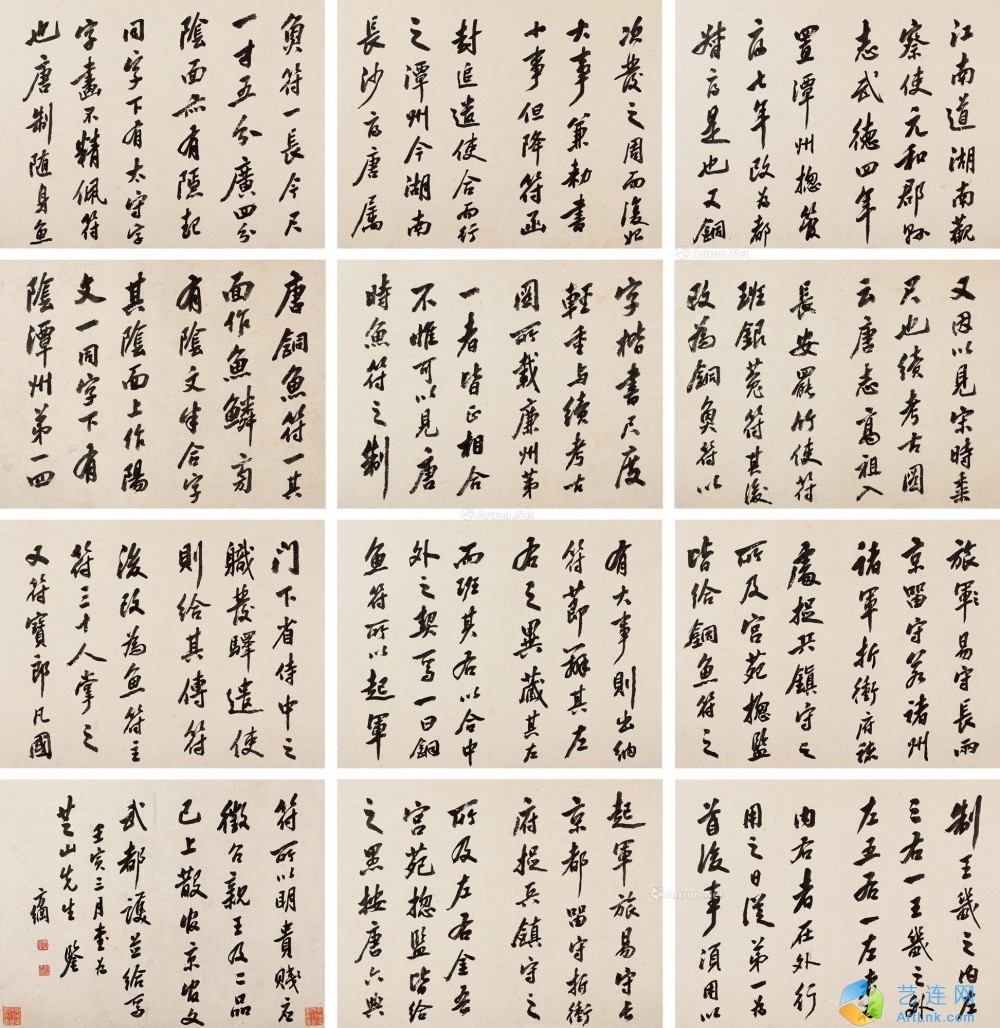 唐銅魚符一其
面作魚鱗旁
有陰文半合字
其陰面上作陽
文一同字下有
陰潭州第一四
字楷書尺度
輕重与續考古
圖所載廉州第
一者皆正相合
不惟可以見唐
時魚符之制
又因以見宋時黍
尺也續考古圖
云唐志高祖入
長安罷竹使符
班銀菟符其後
改為銅魚符以
起軍旅易守長
京都留守折衝
府捉兵鎮守之
所及左右金吾
宮苑摠監皆給
之愚按唐六典
门下省侍中之
職發驛遣使
則給其傳符
後改為魚符主
符三十人掌之
又符寶郎凡國
有大事則出納
符節辨其左
右之異藏其左
而班其右以合中
外之契焉一曰銅
魚符所以起軍
旅易守長兩
京留守若諸州
諸軍折衝府諸
處捉兵鎮守之
所及宮苑摠監
皆給銅魚符之
制王畿之内左
三右一王畿之外
左五右一左者在
内右者在外行
用之日從第一為
首後事須用以
次發之周而復始
大事兼敕書
小事但降符函
封遣使合而行
之潭州今湖南
長沙府唐屬
江南道湖南觀
察使元和郡縣
志武德四年
置潭州摠管
府七年改为都
督府是也又銅
魚符一長今尺
一寸五分廣四分
陰面亦有隱起
同字下有太守字
字畫不精佩符
也唐制随身魚
符所以明貴賤應
徵召親王及二品
已上散官京官文
武都護並給焉
壬寅三月書为
芝山先生鑒
艺连网
ArtLink.com
Artron.Net